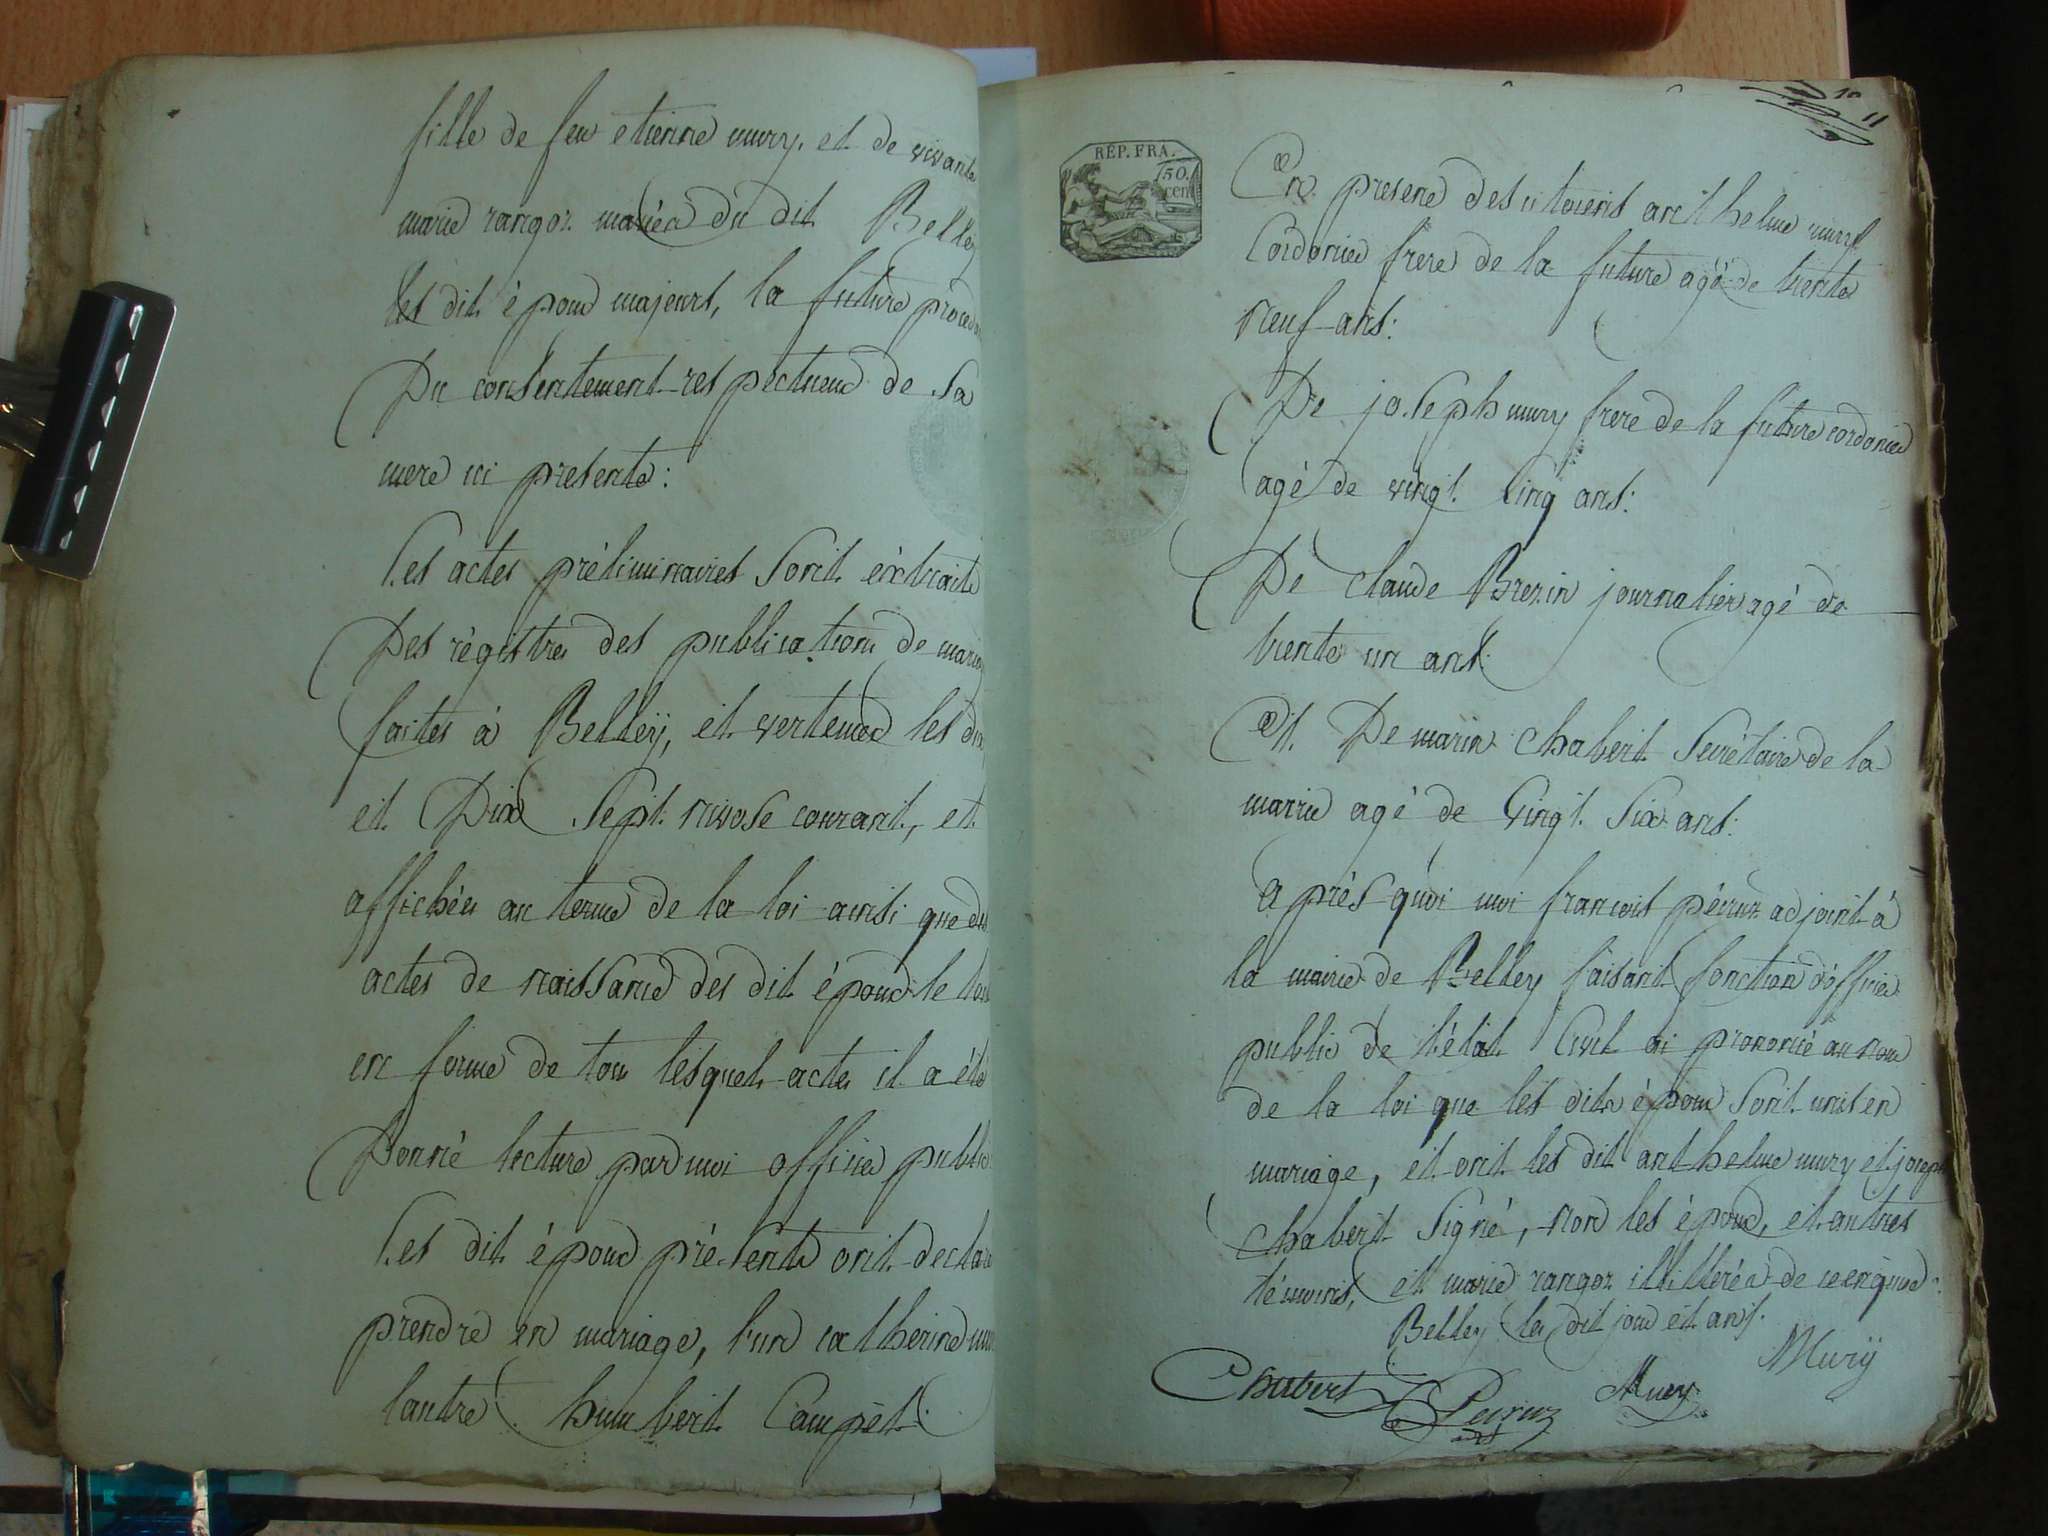 fille de feu etienne mury, et de vivante
marie rangoz mariéa du dit Belley
les dit époux majeurs, la future procedan
Du consentement respectueux de sa
mere ici presente:
Les actes préliminaires sont éxtraits
Des régistres des publications de mariag
faites à Belley, et vertemex les dix
et Dix sept nivose courant, et
affichées au terme de la loi ainsi que des
actes de naissance des dit époux le tout
en forme de tous lesquels actes il a été
Donné lecture par moi officier public
Les dit époux présents ont declaré
prendre en mariage, l'un catherine mury
lautre humbert Campet.
10
11
REP. FRA.
50.
cent
En presence des citoiens anthelme mury
Cordonier frere de la future agé de trente
neuf ans:
De joseph mury frere de la future cordonier
agé de vingt Cinq ans:
De claude Brezin journalier agé de
trente un ans:
Et De marin chabert Secrétaire de la
mairie agé de Vingt Six ans:
après quoi moi francois pécruz adjoint à
la mairie de Belley faisant fonction d'officier
public de l'état Civil ai prononcé au nom
de la loi que les dits époux sont unis en
mariage, et ont les dit anthelme mury et joseph
chabert Signé, non les époux, et autres
témoins, et marie rangoz illitérés de ce enquis
Belley les dit jour et ans.
Murÿ
Chabert Pecruz Mury
adjt